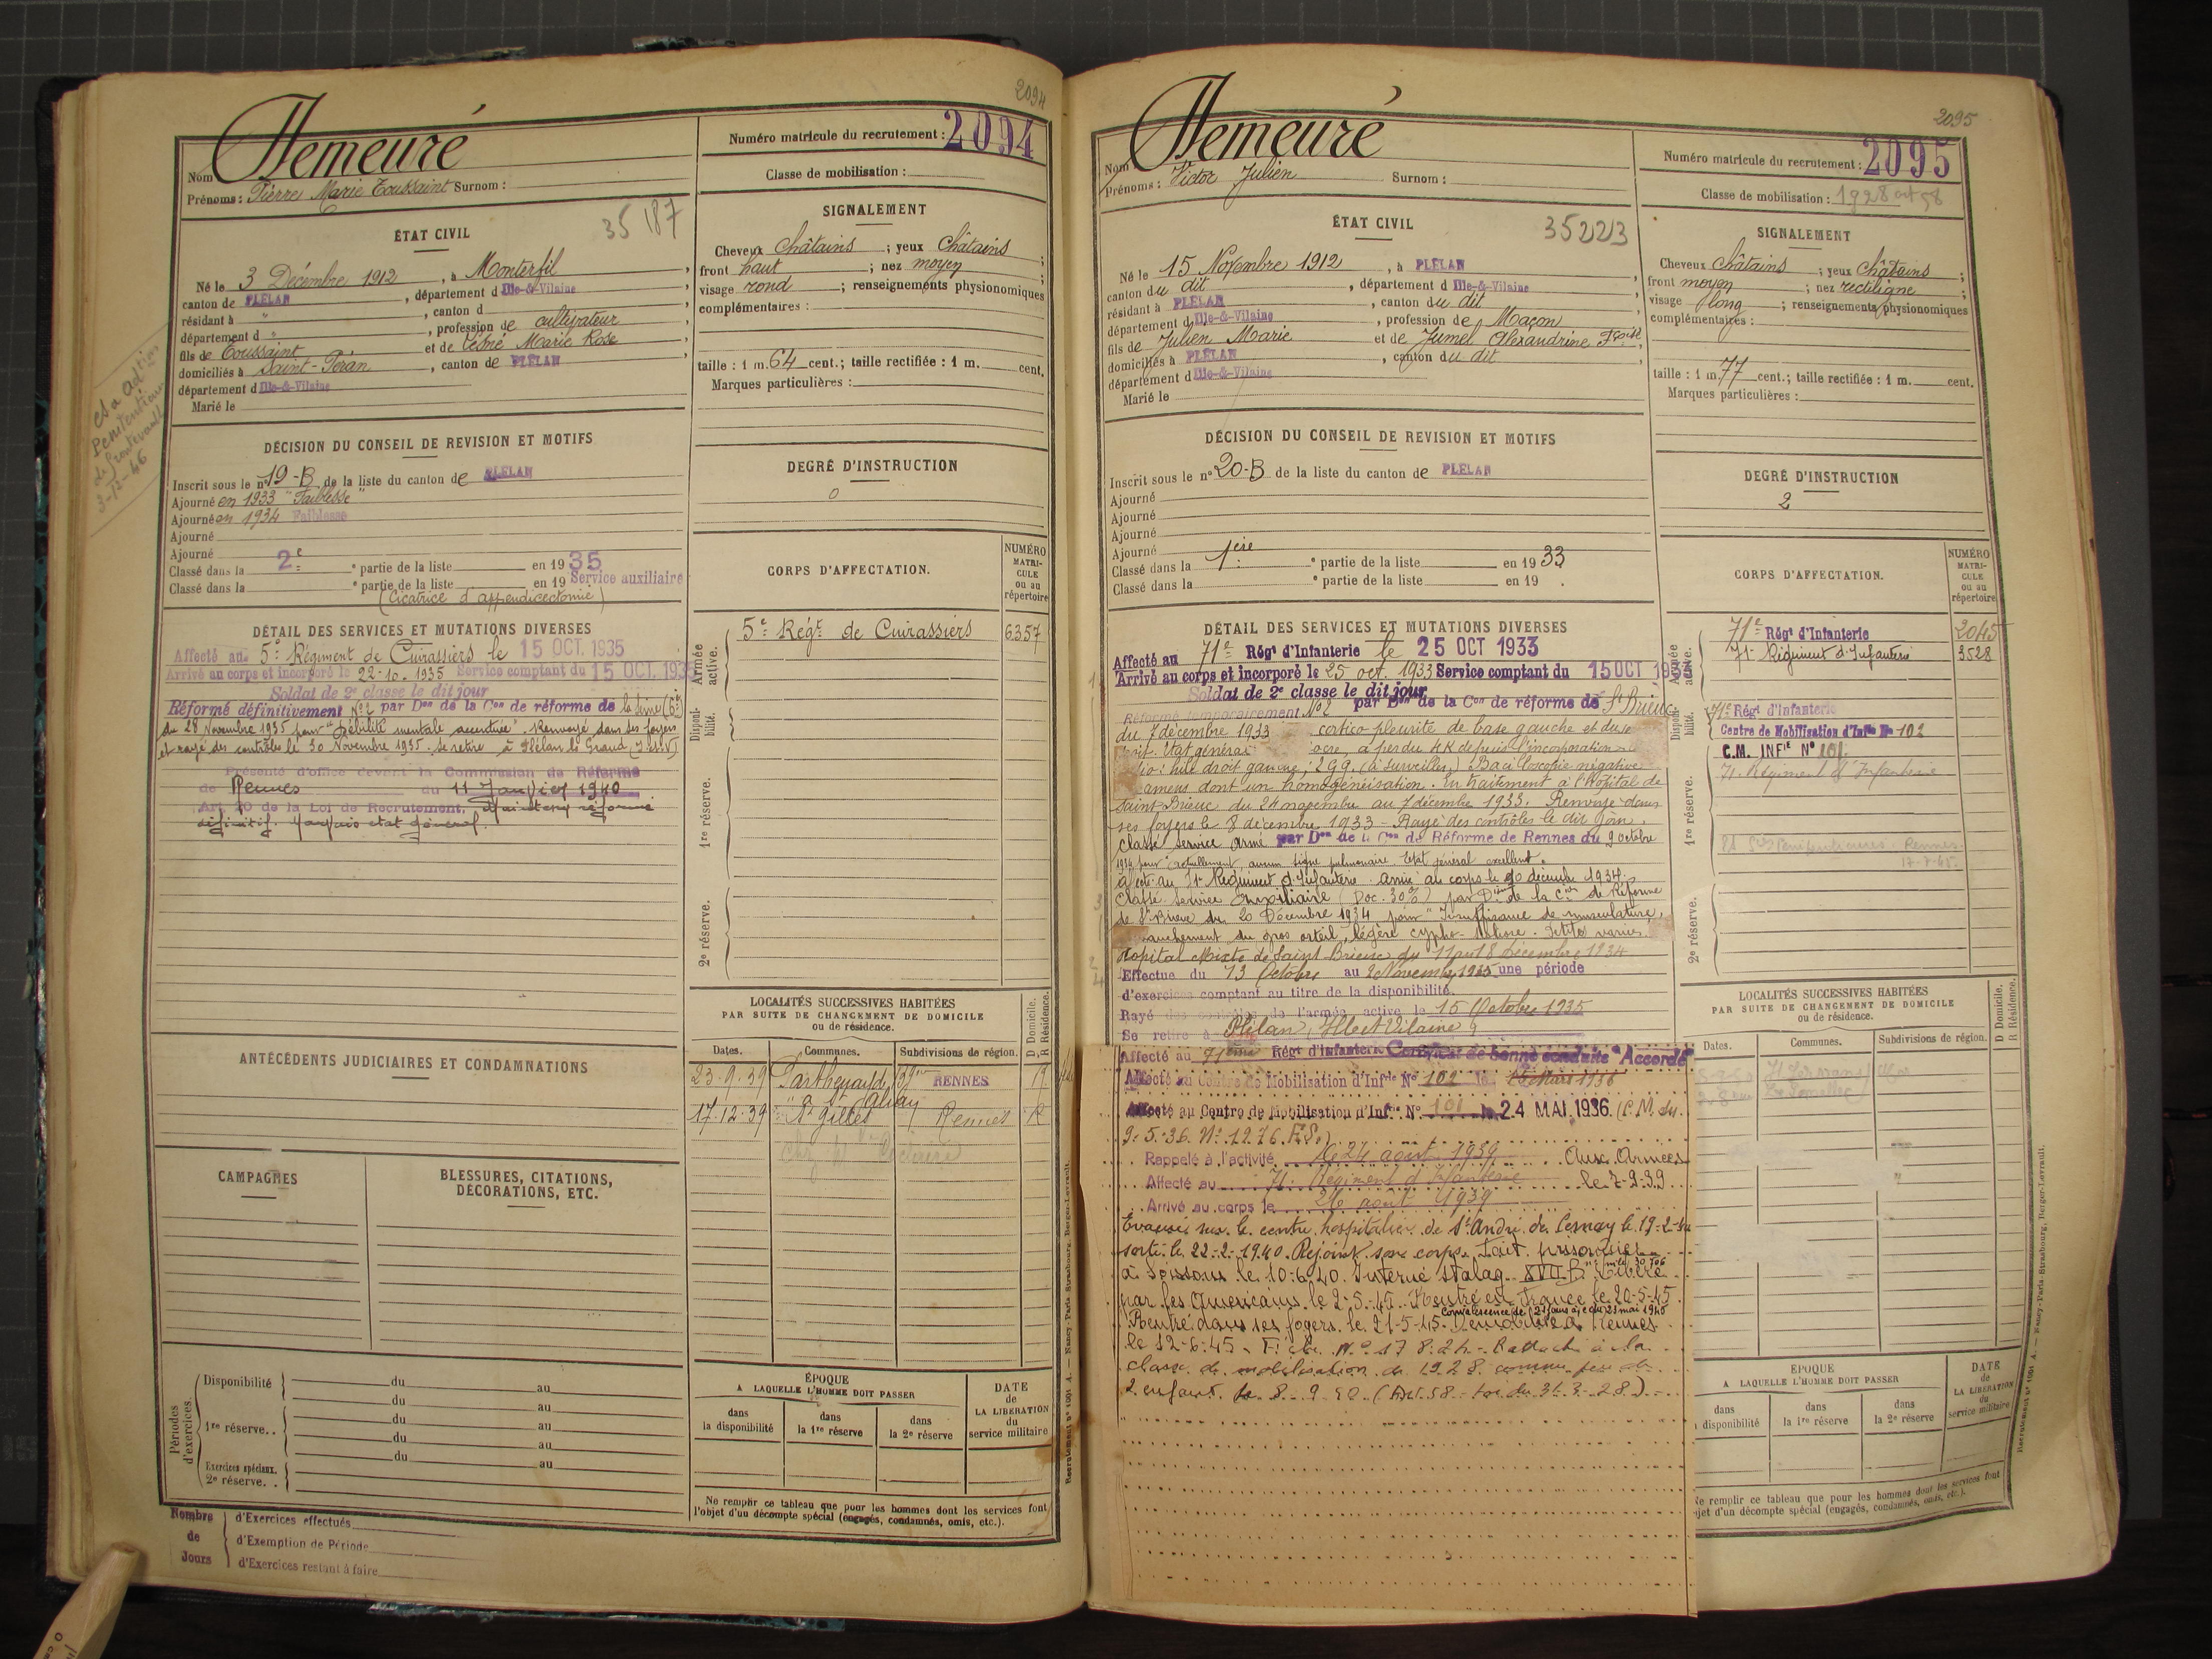 2094
Nom Demeuré
Prénoms : Pierre Marie Toussaint Surnom :
Numéro matricule du recrutement : 2094
Classe de mobilisation :
ÉTAT CIVIL
35 187
Né le 3 Décembre 1912, à Monterfil,
canton de PLÉLAN, département d Ille-&-Vilaine,
résidant à ", canton d
département d ", profession de cultivateur,
fils de Toussaint et de Lesné Marie Rose,
domiciliés à Saint-Péran, canton de PLÉLAN
département d Ille-&-Vilaine
Marié le
SIGNALEMENT
Cheveux châtains ; yeux châtains ;
front haut ; nez moyen ;
visage rond ; renseignements physionomiques
complémentaires :
taille : 1 m. 64 cent. ; taille rectifiée : 1 m. cent.
Marques particulières :
3-12-46
DÉCISION DU CONSEIL DE REVISION ET MOTIFS
Inscrit sous le n° 19-B de la liste du canton de PLÉLAN
Ajourné en 1933 "Faiblesse"
Ajourné en 1934 Faiblesse
Ajourné
Ajourné
Classé dans la 2e ° partie de la liste en 1935
Classé dans la ° partie de la liste en 19 Service auxiliaire
(Cicatrice d'appendicectomie)
DEGRÉ D'INSTRUCTION
0
CORPS D'AFFECTATION.
NUMÉRO MATRICULE ou au répertoire
Armée active.
5e Régt de Cuirassiers 6357
Disponibilité.
1re réserve.
2e réserve.
DÉTAIL DES SERVICES ET MUTATIONS DIVERSES
Affecté au 5e Régiment de Cuirassiers le 15 OCT. 1935
Arrivé au corps et incorporé le 22-10-1935 Service comptant du 15 OCT. 1935
Soldat de 2e classe le dit jour
Réformé définitivement N°2 par Don de la Con de réforme de la Seine (6e)
du 28 Novembre 1935 pour "débilité mentale accentuée". Renvoyé dans ses foyers
et rayé des contrôles le 30 Novembre 1935. Se retire à Plélan le Grand (I.et.V)
Présenté d'office devant la Commission de Réforme
de Rennes du 11 Janvier 1940
Art. 20 de la Loi de Recrutement. Maintenu réformé
définitif. Mauvais état général.
ANTÉCÉDENTS JUDICIAIRES ET CONDAMNATIONS
LOCALITÉS SUCCESSIVES HABITÉES
PAR SUITE DE CHANGEMENT DE DOMICILE
ou de résidence.
D Domicile.
R Résidence.
Dates. Communes. Subdivisions de région.
23-9-39 RENNES
17-12-39 St Gilles Rennes R
CAMPAGNES
BLESSURES, CITATIONS,
DÉCORATIONS, ETC.
Périodes d'exercices.
Disponibilité du au
du au
1re réserve. . du au
du au
Exercices spéciaux. du au
2e réserve. .
ÉPOQUE
A LAQUELLE L'HOMME DOIT PASSER
dans la disponibilité
dans la 1re réserve
dans la 2e réserve
DATE de LA LIBÉRATION du service militaire
Ne remplir ce tableau que pour les hommes dont les services font
l'objet d'un décompte spécial (engagés, condamnés, omis, etc.).
Nombre de Jours
d'Exercices effectués
d'Exemption de Période
d'Exercices restant à faire
Recrutement N° 1091 A. — Nancy-Paris-Strasbourg, Berger-Levrault.
2095
Nom Demeuré
Prénoms : Victor Julien Surnom :
Numéro matricule du recrutement : 2095
Classe de mobilisation : 1928 art 58
ÉTAT CIVIL
35223
Né le 15 Novembre 1912, à PLÉLAN,
canton du dit, département d Ille-&-Vilaine,
résidant à PLÉLAN, canton du dit,
département d Ille-&-Vilaine, profession de Maçon,
fils de Julien Marie et de Jumel Alexandrine Fçoise,
domiciliés à PLÉLAN, canton du dit
département d Ille-&-Vilaine
Marié le
SIGNALEMENT
Cheveux châtains ; yeux châtains ;
front moyen ; nez rectiligne ;
visage long ; renseignements physionomiques
complémentaires :
taille : 1 m. 77 cent. ; taille rectifiée : 1 m. cent.
Marques particulières :
DÉCISION DU CONSEIL DE REVISION ET MOTIFS
Inscrit sous le n° 20-B de la liste du canton de PLÉLAN
Ajourné
Ajourné
Ajourné
Ajourné
Classé dans la 1ère ° partie de la liste en 1933
Classé dans la ° partie de la liste en 19 .
DEGRÉ D'INSTRUCTION
2
CORPS D'AFFECTATION.
NUMÉRO MATRICULE ou au répertoire
Armée active.
71e Régt d'Infanterie 2045
71e Régiment d'Infanterie 3528
Disponibilité.
71e Régt d'Infanterie
Centre de Mobilisation d'Infie N° 102
C.M. INFIE N° 101
71e Régiment d'Infanterie
1re réserve.
Rennes
17-7-45
2e réserve.
DÉTAIL DES SERVICES ET MUTATIONS DIVERSES
Affecté au 71e Régt d'Infanterie le 25 OCT 1933
Arrivé au corps et incorporé le 25 oct. 1933 Service comptant du 15 OCT 1933
Soldat de 2e classe le dit jour
Réformé temporairement N°2 par Don de la Con de réforme de St Brieuc
du 7 décembre 1933 cortico pleurite de base gauche et du
Etat général ocre, a perdu 4K depuis l'incorporation
hile droit gauche, 299. (à surveiller) Bacilloscopie négative
examens dont un homogénéisation. En traitement à l'Hôpital de
Saint-Brieuc du 24 novembre au 7 décembre 1933. Renvoyé dans
ses foyers le 8 décembre 1933 - Rayé des contrôles le dit jour.
Classé service armé par Don de la Con de Réforme de Rennes du 9 Octobre
1934 pour "actuellement aucun signe pulmonaire Etat général excellent".
Affecté au 71e Régiment d'Infanterie arrivé au corps le 10 décembre 1934.
Classé service Auxiliaire (Doc. 30%) par Don de la Con de Réforme
de St Brieuc du 20 Décembre 1934 pour "Insuffisance de musculature,
du gros orteil, légère cypho-scoliose. Petites varices.
Hôpital Mixte de Saint Brieuc du 11 au 18 Décembre 1934
Effectue du 13 Octobre au 2 Novembre 1935 une période
d'exercices comptant au titre de la disponibilité.
Rayé des contrôles de l'armée active le 15 Octobre 1935
Se retire à Plélan, Ille et Vilaine
Affecté au 71ème Régt d'Infanterie Certificat de bonne conduite "Accordé"
Affecté au Centre de Mobilisation d'Infie N° 102 le 15 Mars 1936
Affecté au Centre de Mobilisation d'Infie N° 101 le 24 MAI 1936. (C.M. du
9.5.36. N° 1276. F.S.)
Rappelé à l'activité le 24 août 1939 Aux Armées
Affecté au 71e Régiment d'Infanterie le 2-9-39
Arrivé au corps le 26 août 1939
Evacué sur le centre hospitalier de St André de Cernay le 19-2-40
sorti le 22-2-1940. Rejoint son corps. Fait prisonnier
à Soissons le 10-6-40. Interné Stalag XVII B Libéré
par les Américains le 2-5-45. Rentré en France le 20-5-45
Convalescence de 21 jours à/c du 21 mai 1945
Rentré dans ses foyers le 21-5-45. Démobilisé à Rennes
le 12-6-45 - Fiche N° 17824 - Rattaché à la
classe de mobilisation de 1928 comme père de
2 enfants le 8-9-50 (Art. 58 - Loi du 31.3.28)
LOCALITÉS SUCCESSIVES HABITÉES
PAR SUITE DE CHANGEMENT DE DOMICILE
ou de résidence.
D Domicile.
R Résidence.
Dates. Communes. Subdivisions de région.
ÉPOQUE
A LAQUELLE L'HOMME DOIT PASSER
dans disponibilité
dans la 1re réserve
dans la 2e réserve
DATE de LA LIBÉRATION du service militaire
Ne remplir ce tableau que pour les hommes dont les services font
objet d'un décompte spécial (engagés, condamnés, omis, etc.).
Recrutement N° 1091 A. — Nancy-Paris-Strasbourg, Berger-Levrault.